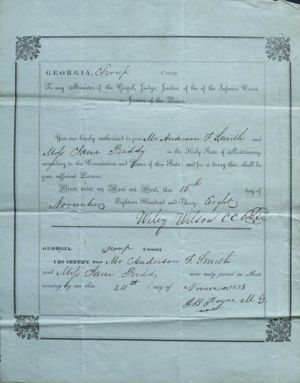 GEORGIA, Troup County.
To any Minister of the Gospel, Judge, Justice of the Inferior Court,
or Justice of the Peace.
You are hereby authorized to join Mr. Anderson F Smith and
Miss Jane Priddy in the Holy State of Matrimony,
according to the Constitution and Laws of this State: and for so doing this shall be
your sufficient License.
Given under my Hand and Seal, this 15th day of
November Eighteen Hundred and Thirty- Eight
Wiley Wilson C C O
GEORGIA. Troup County
I DO CERTIFY that Mr Anderson F Smith
and Miss Jane Priddy were duly joined in Matri-
mony by me this day of
November 1838
Payne M G